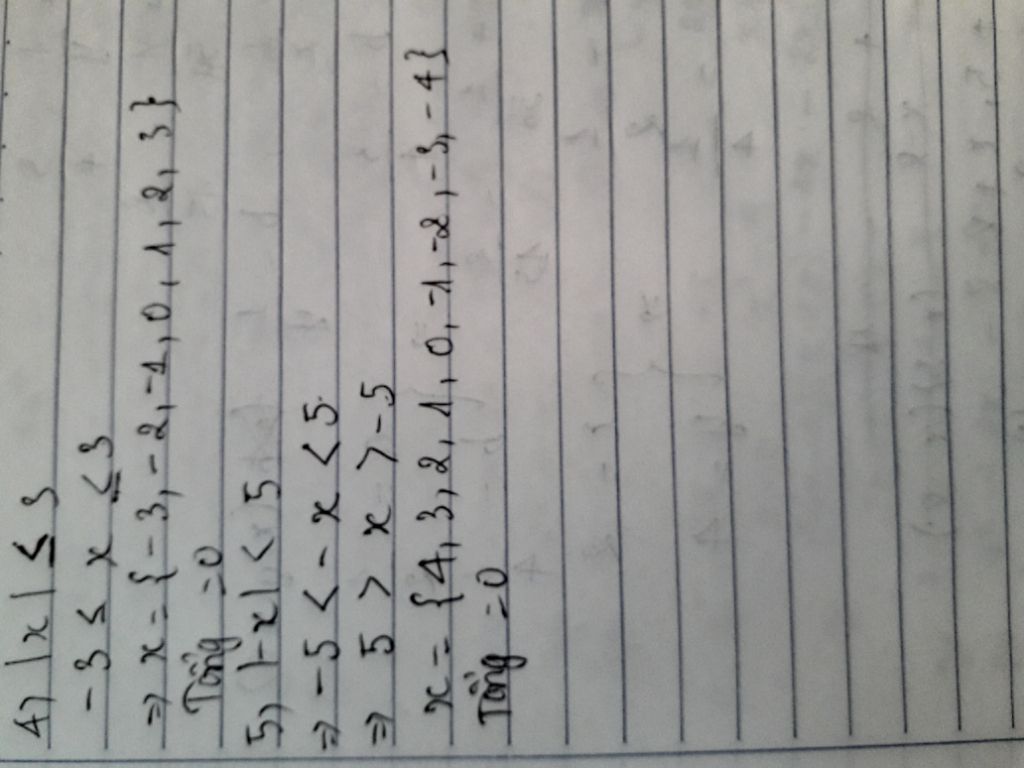 4) |x| ≤ 3
-3 ≤ x ≤ 3
=> x = {-3, -2, -1, 0, 1, 2, 3}
Tổng = 0
5) |-x| < 5
=> -5 < -x < 5
=> 5 > x > -5
x = {4, 3, 2, 1, 0, -1, -2, -3, -4}
Tổng = 0